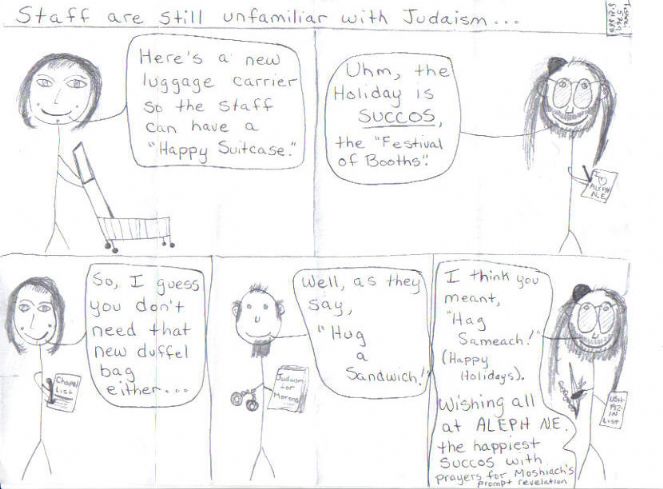 Staff are still unfamiliar with Judaism...
Here's a new
luggage carrier
so the staff
can have a
"Happy Suitcase."
Uhm, the
Holiday is
SUCCOS,
the "Festival
of Booths."
I
ALEPH
NE
So, I guess
you don't
need that
new duffel
bag
either...
Chapel
List
Well, as they
say,
"Hug
a
Sandwich!"
Judaism
for
Morons
I think you
meant,
"Hag
Sameach!"
(Happy
Holidays).
Wishing all
at ALEPH NE,
the happiest
SUCCOS with
prayers for Moshiach's
prompt revelation
USH-
PIZ
IN
LIST